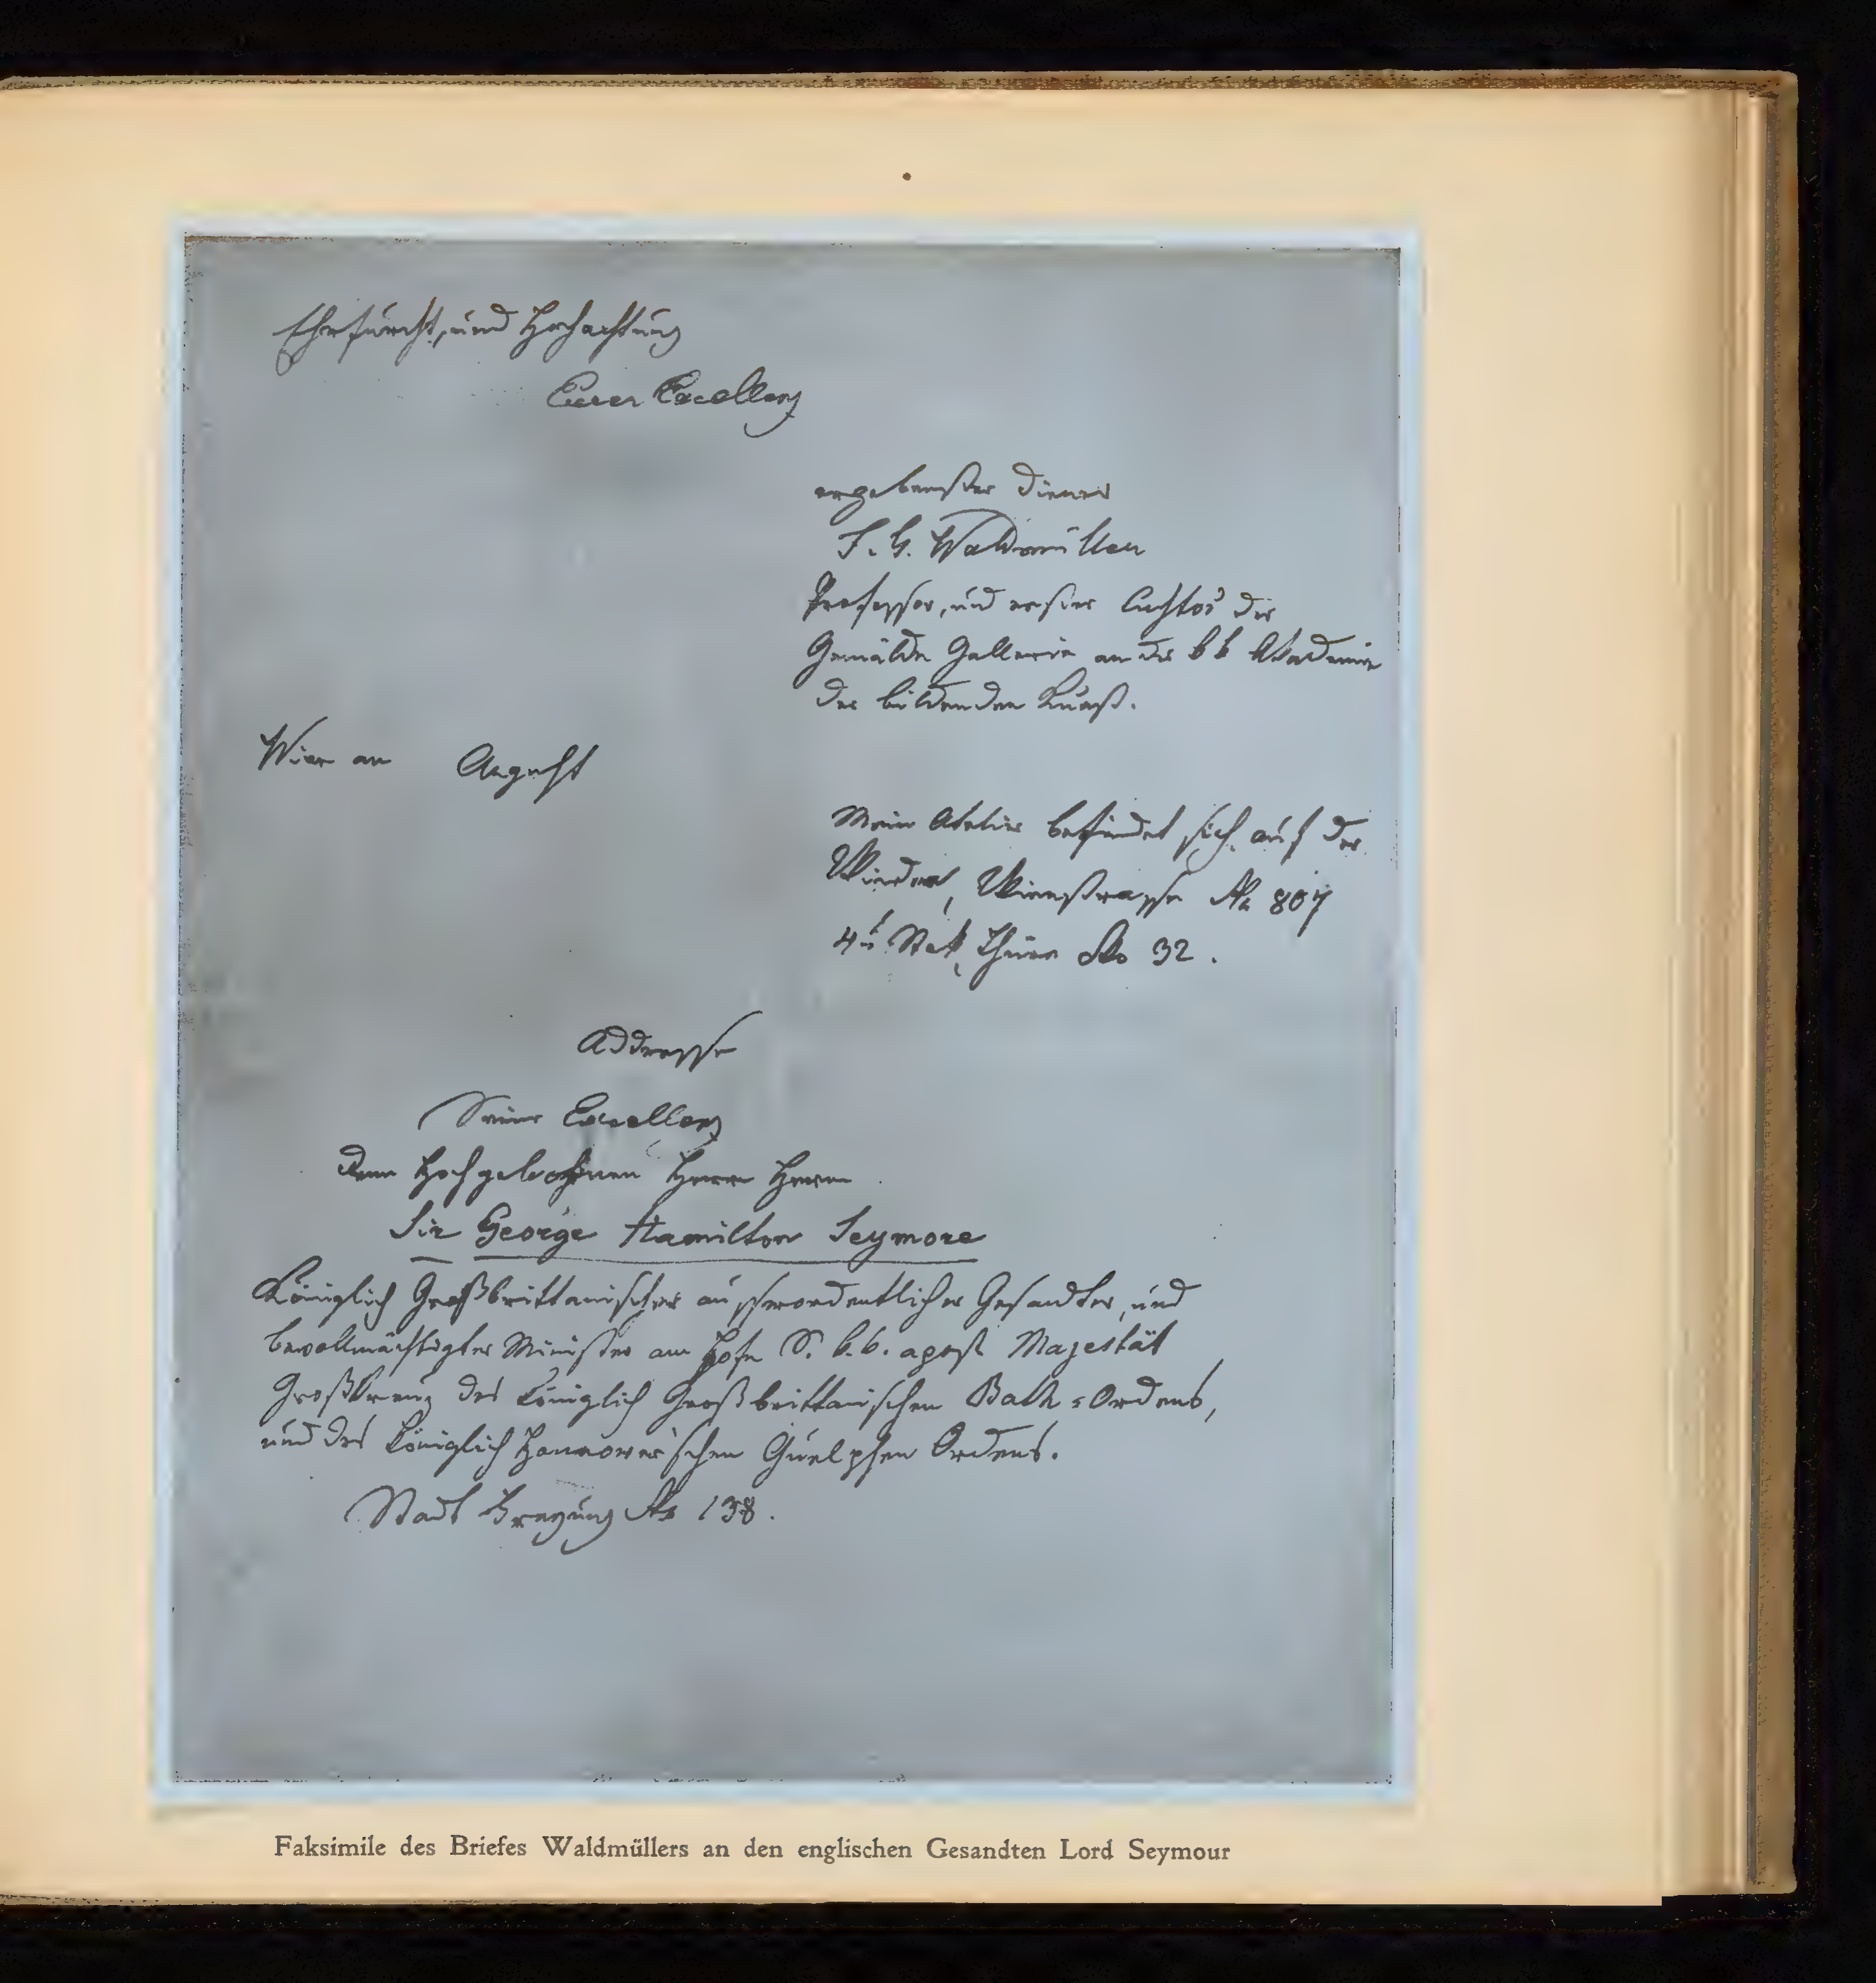 Ehrfurcht, und Hochachtung
Eurer Excellenz
ergebenster Diener
F. G. Waldmüller
Professor, und erster Custos der
Gemälde Gallerie an der k k Akademie
der bildenden Kunst.
Wien am August
Mein Atelier befindet sich auf der
Wieden, Wienstrasse No 807
4t Stok, Thüre No 32.
Addresse
Seiner Excellenz
Dem Hochgebohrnen Herrn Herrn
Sir George Hamilton Seymore
Königlich Großbrittanischer ausserordentlicher Gesandter, und
bevollmächtigter Minister am Hofe S. k. k. apost Majestät
Großkreuz des Königlich Großbrittanischen Bath=Ordens,
und des Königlich Hannover'schen Guelphen Ordens.
Stadt No 138.
Faksimile des Briefes Waldmüllers an den englischen Gesandten Lord Seymour